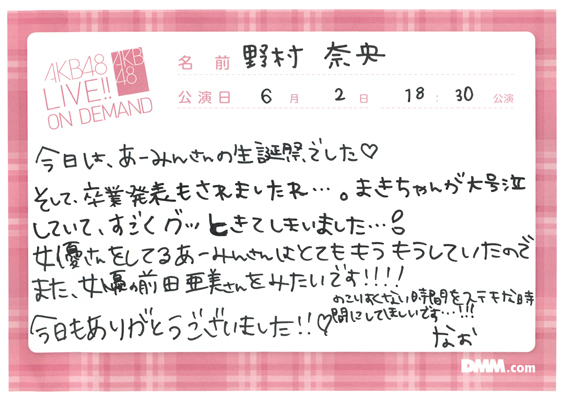 AKB48
LIVE!!
ON DEMAND
AKB
48
名前 野村 奈央
公演日 6月 2日 18:30 公演
今日は、あーみんさんの生誕祭でした♡
そして、卒業発表もされましたね…。まきちゃんが大号泣
していて、すごくグッときてしまいました…
女優さんをしてるあーみんさんはとてもキラキラしていたので
また、女優の前田亜美さんをみたいです!!!!
のこりすくない時間をステキな時
間にしてほしいです…!!!
今日もありがとうございました!!♡
なお
DMM.com